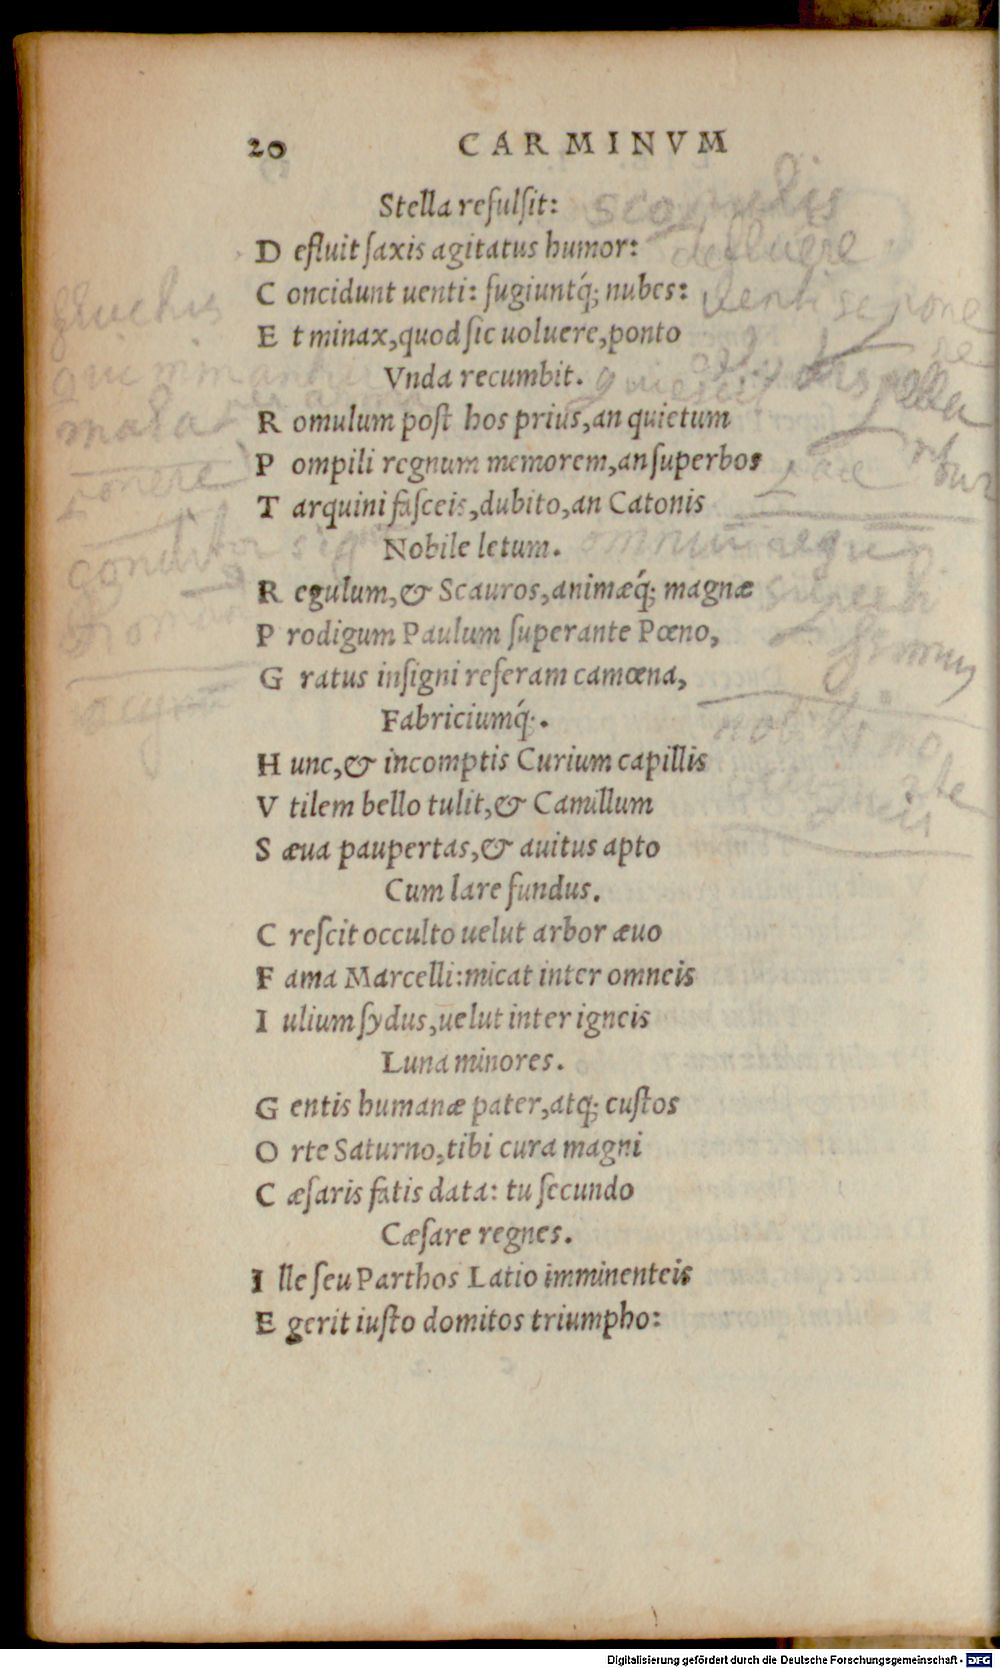 20 CARMINVM
Stella refulſit:
D efluit ſaxis agitatus humor:
C oncidunt uenti: fugiuntq́; nubes:
E t minax, quod ſic uoluere, ponto
Vnda recumbit.
R omulum poſt hos prius, an quietum
P ompili regnum memorem, an ſuperbos
T arquini faſceis, dubito, an Catonis
Nobile letum.
R egulum, & Scauros, animæq́; magnæ
P rodigum Paulum ſuperante Pœno,
G ratus inſigni referam camœna,
Fabriciumq́;.
H unc, & incomptis Curium capillis
V tilem bello tulit, & Camillum
S æua paupertas, & auitus apto
Cum lare fundus.
C reſcit occulto uelut arbor æuo
F ama Marcelli: micat inter omneis
I ulium ſydus, uelut inter igneis
Luna minores.
G entis humanæ pater, atq; cuſtos
O rte Saturno, tibi cura magni
C æſaris fatis data: tu ſecundo
Cæſare regnes.
I lle ſeu Parthos Latio imminenteis
E gerit iuſto domitos triumpho:
defluere
venti se pone
mala
ponere
Digitalisierung gefördert durch die Deutsche Forschungsgemeinschaft - DFG